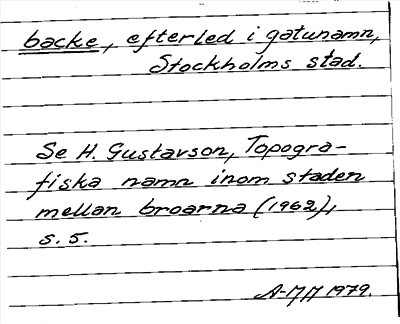 backe, efterled i gatunamn,
Stockholms stad.
Se H. Gustavson, Topogra-
fiska namn inom staden
mellan broarna (1962),
s. 5.
A-MM 1979.